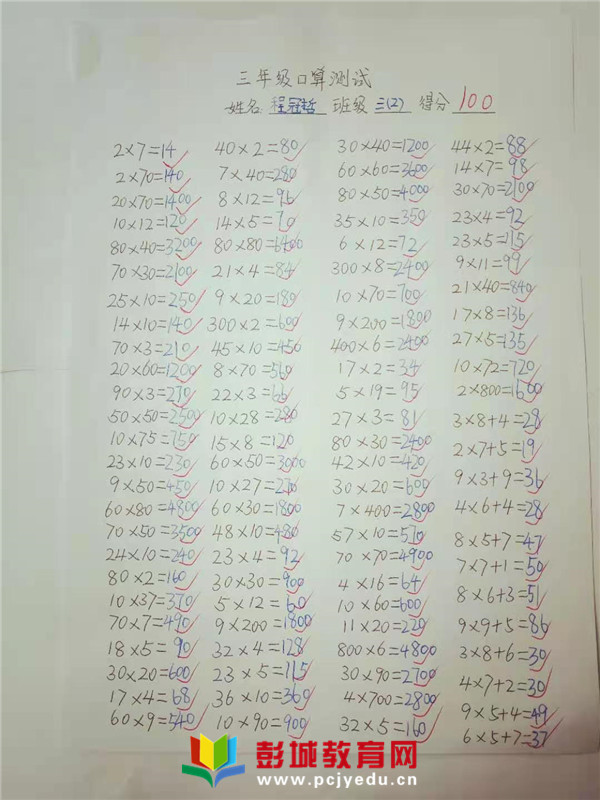 三年级口算测试
姓名 程冠哲 班级 三(2) 得分 100
2×7=14
2×70=140
20×70=1400
10×12=120
80×40=3200
70×30=2100
25×10=250
14×10=140
70×3=210
20×60=1200
90×3=270
50×50=2500
10×75=750
23×10=230
9×50=450
60×80=4800
70×50=3500
24×10=240
80×2=160
10×37=370
70×7=490
18×5=90
30×20=600
17×4=68
60×9=540
40×2=80
7×40=280
8×12=96
14×5=70
80×80=6400
21×4=84
9×20=180
300×2=600
45×10=450
8×70=560
22×3=66
10×28=280
15×8=120
60×50=3000
10×27=270
60×30=1800
48×10=480
23×4=92
30×30=900
5×12=60
9×200=1800
32×4=128
23×5=115
36×10=360
10×90=900
30×40=1200
60×60=3600
80×50=4000
35×10=350
6×12=72
300×8=2400
10×70=700
9×200=1800
400×6=2400
17×2=34
5×19=95
27×3=81
80×30=2400
42×10=420
30×20=600
7×400=2800
57×10=570
70×70=4900
4×16=64
10×60=600
11×20=220
800×6=4800
30×90=2700
4×700=2800
32×5=160
44×2=88
14×7=98
30×70=2100
23×4=92
23×5=115
9×11=99
21×40=840
17×8=136
27×5=135
10×72=720
2×800=1600
3×8+4=28
2×7+5=19
9×3+9=36
4×6+4=28
8×5+7=47
7×7+1=50
8×6+3=51
9×9+5=86
3×8+6=30
4×7+2=30
9×5+4=49
6×5+7=37
彭城教育网
www.pcjyedu.cn